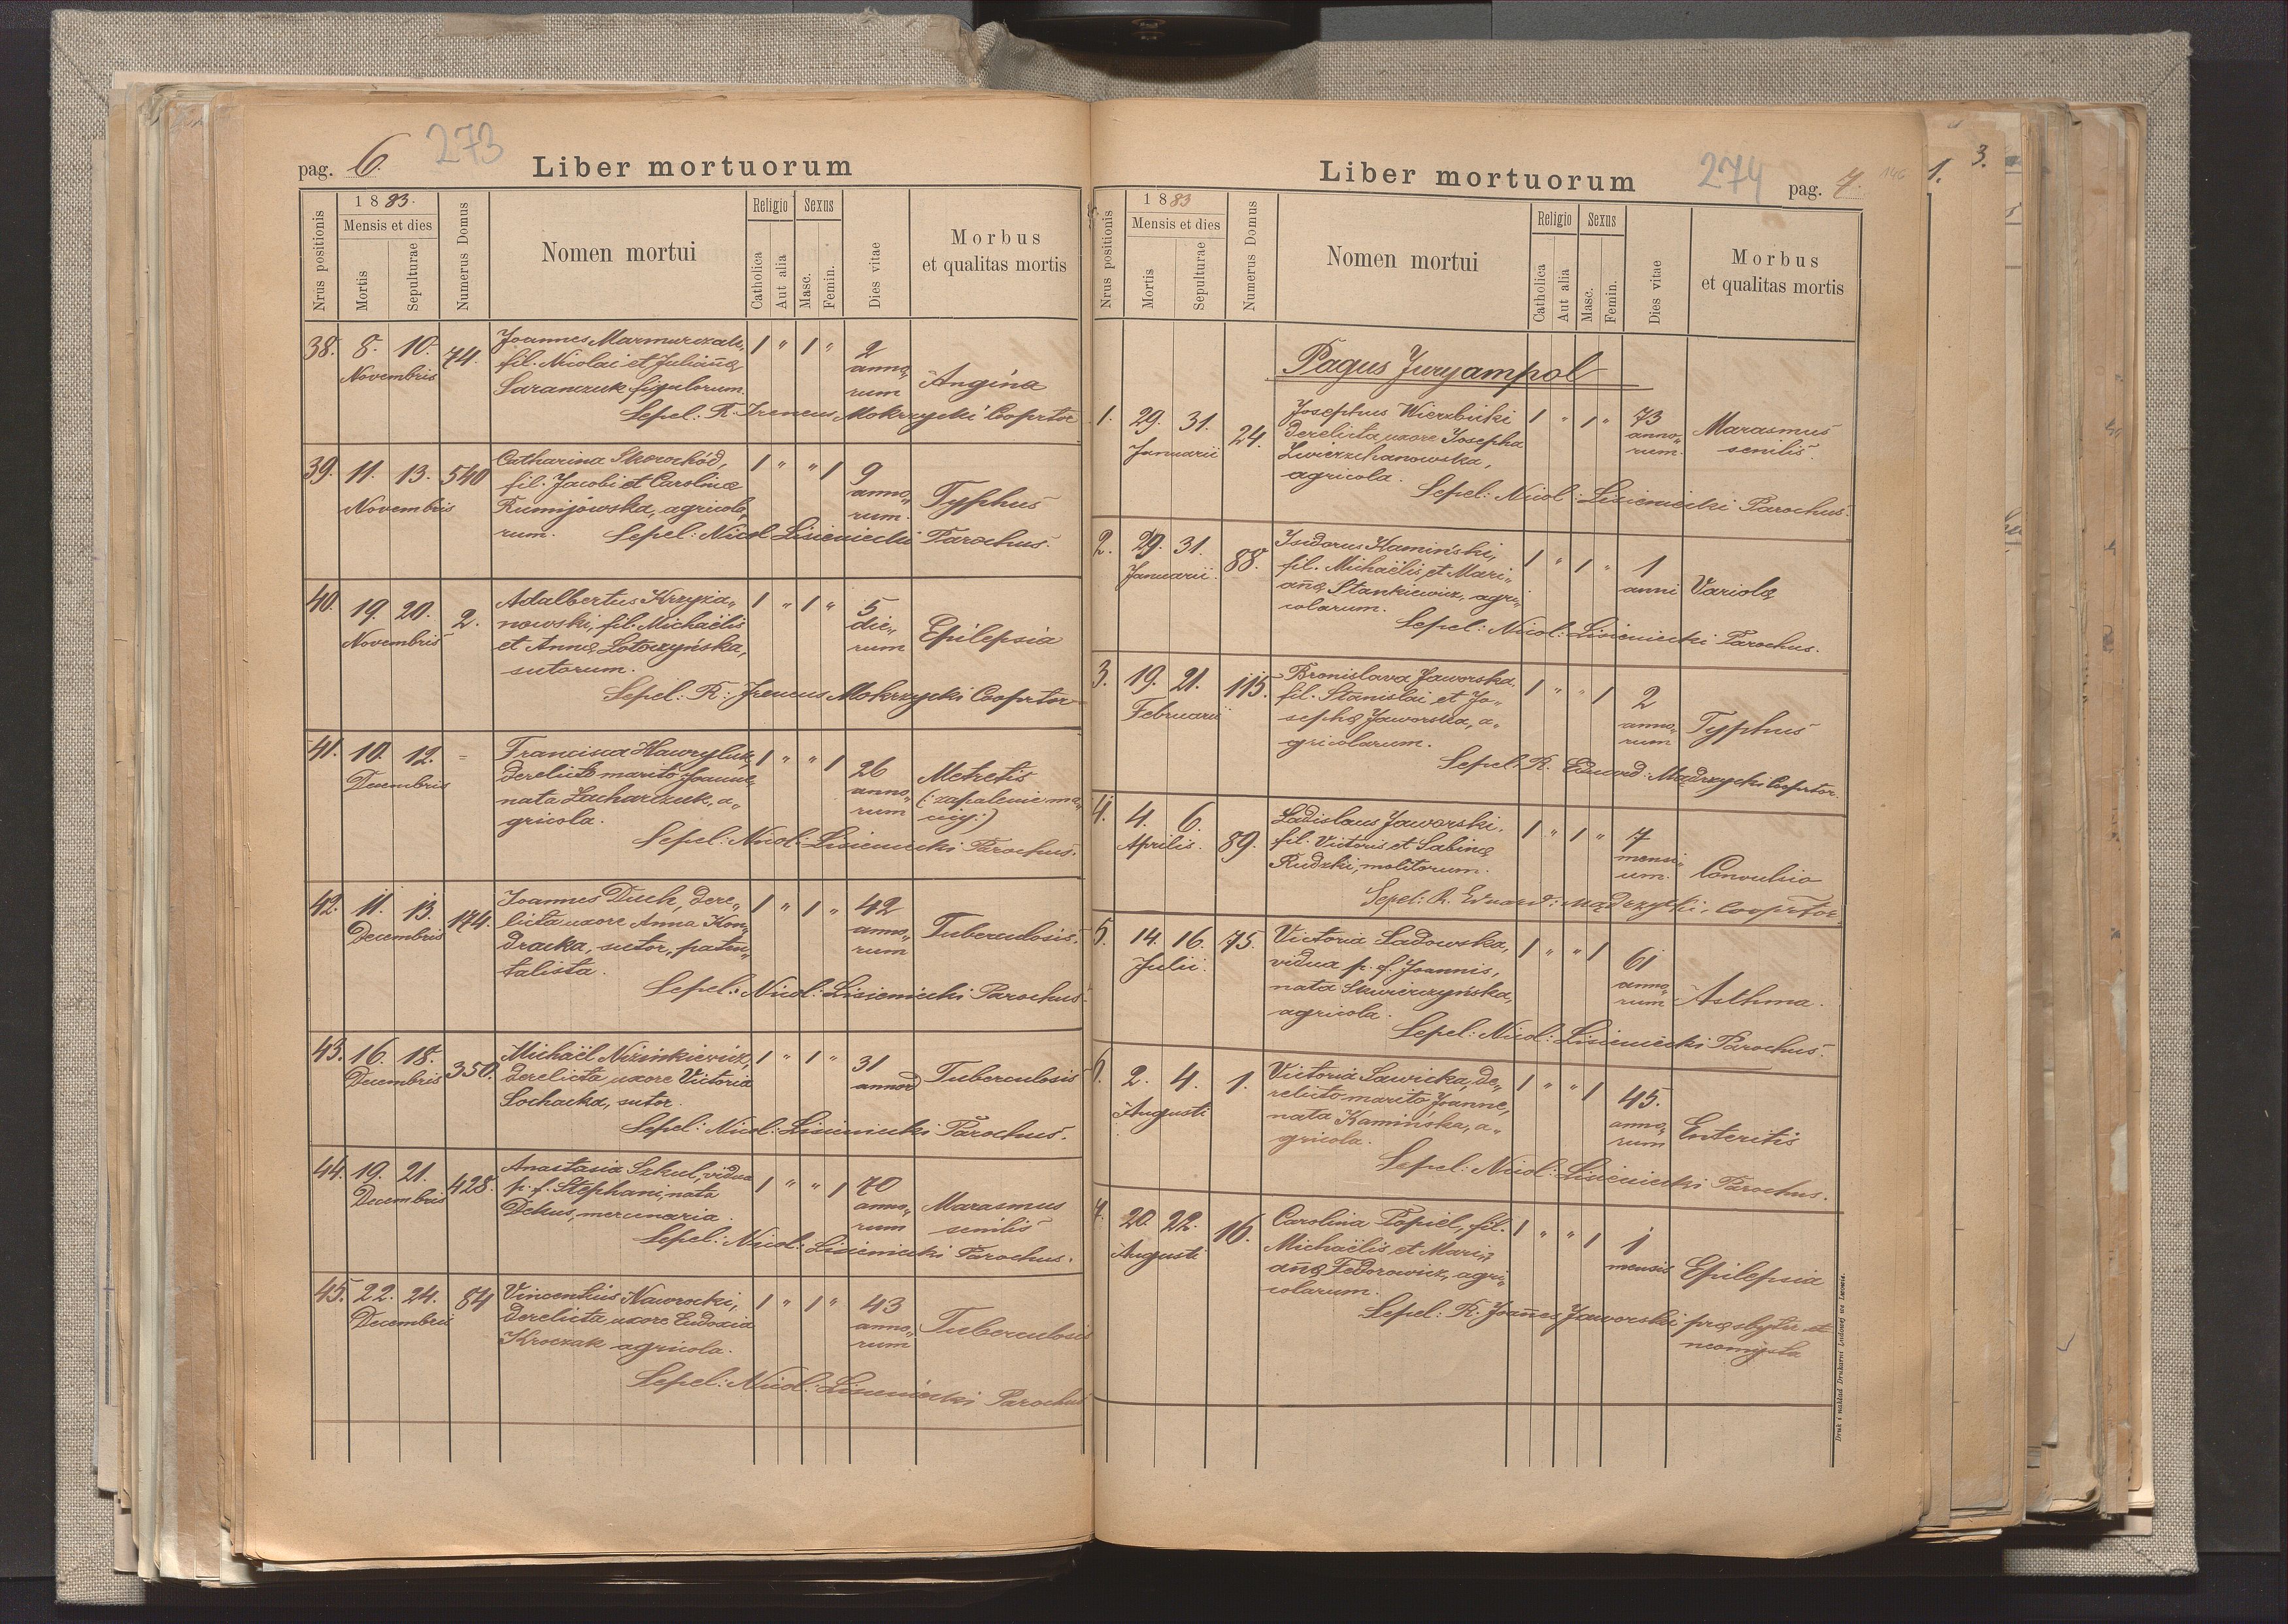 pag. 6. 273 Liber mortuorum
Nrus positionis
1883.
Mensis et dies
Mortis
Sepulturae
Numerus Domus
Nomen mortui
Religio
Catholica
Aut alia
Sexus
Masc.
Femin.
Dies vitae
Morbus
et qualitas mortis
38. 8. 10. 74. Joannes Marmurczak, 1 " 1 " 2
Novembris fil. Nicolai et Julianæ anno„
Saranczuk figulorum. rum Angina
Sepel: R. Ireneus Mokrzycki Cooprtor
39. 11. 13. 540 Catharina Skorochód, 1 " " 1 9
Novembris fil. Jacobi et Carolinæ anno„
Rumijowska, agricola„ rum. Typhus
rum. Sepel: Nicol Lisieniecki Parochus.
40. 19. 20. 2. Adalbertus Krzyża„ 1 " 1 " 5
Novembris nowski, fil. Michaëlis die„
et Annæ Lotoczyńska, rum Epilepsia
sutorum.
Sepel: R: Ireneus Mokrzycki Cooprtor
41. 10. 12. = Francisca Hawryluk, 1 " " 1 26
Decembris derelicto marito Joanne, anno„ Metretis
nata Zacharczuk, a„ rum (: zapalenie ma„
gricola. cicy:)
Sepel: Nicol: Lisieniecki Parochus.
42. 11. 13. 174. Joannes Duch, dere„ 1 " 1 " 42
Decembris licta uxore Anna Kon„ anno„
dracka, sutor, paten„ rum Tuberculosis.
talista.
Sepel: Nicol: Lisieniecki Parochus.
43. 16. 18. 350. Michaël Niżinkiewicz, 1 " 1 " 31
Decembris derelicta uxore Victoria annor Tuberculosis
Sochacka, sutor.
Sepel: Nicol: Lisieniecki Parochus.
44. 19. 21. 428. Anastasia Szkul, vidua 1 " " 1 70
Decembris p. f. Stephani, nata anno„ Marasmus
mercenaria. rum senilis
Sepel: Nicol: Lisieniecki Parochus.
45. 22. 24. 84 Vincentius Naworocki, 1 " 1 " 43
Decembris derelicta uxore Eudoxia anno„
Kroczak agricola. rum Tuberculosis
Sepel: Nicol: Lisieniecki Parochus
Liber mortuorum 274 pag. 7. 146
Nrus positionis
1883
Mensis et dies
Mortis
Sepulturae
Numerus Domus
Nomen mortui
Religio
Catholica
Aut alia
Sexus
Masc.
Femin.
Dies vitae
Morbus
et qualitas mortis
Pagus Juryampol
1. 29. 31. 24. Josephus Wierzbicki 1 " 1 " 73
Januarii derelicta uxore Josepha anno„ Marasmus
Zwierzchanowska, rum. senilis.
agricola.
Sepel: Nicol: Lisieniecki Parochus.
2. 29. 31. 88. Isidorus Kamiński, 1 " 1 " 1
Januarii. fil. Michaëlis et Mari„ anni Variolæ
anæ Stankiewicz, agri„
colarum.
Sepel: Nicol: Lisieniecki Parochus.
3. 19. 21. 115. Bronislava Jaworska, 1 " " 1 2
Februarii fil. Stanislai et Jo„ anno„
sephæ Jaworska, a„ rum Typhus
gricolarum.
Sepel: R. Eduard: Mądrzycki Cooprtor.
4. 4. 6. 89. Ladislaus Jaworski, 1 " 1 " 7
Aprilis. fil. Victoris et Sabinæ mensi„
Rudzki, molitorum. um. Convulsio
Sepel: R. Eduard: Mądrzycki, Cooprtor.
5. 14. 16. 75. Victoria Sadowska, 1 " " 1 61
Julii. vidua p. f. Joannis, anno„
nata Skwierczyńska, rum Asthma.
agricola.
Sepel: Nicol: Lisieniecki Parochus.
6. 2. 4. 1. Victoria Sawicka, de„ 1 " " 1 45.
Augusti relicto marito Joanne, anno„
nata Kamińska, a„ rum Enteritis
gricola.
Sepel: Nicol: Lisieniecki Parochus.
7. 20. 22. 16. Carolina Popiel, fil. 1 " " 1 1
Augusti Michaëlis et Mari„ mensis Epilepsia
anæ Fedorowicz, agri„
colarum.
Sepel: R. Joañes Jaworski præsbyter et
neomysta
Druk i nakład Drukarni Ludowej we Lwowie.
1. 3.